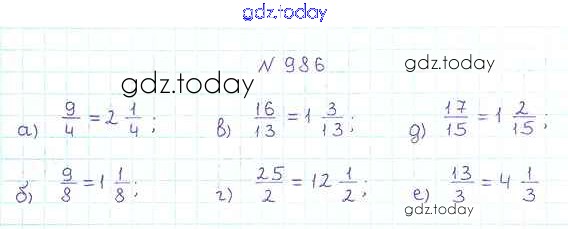 gdz.today
N 986
gdz.today
gdz.today
а) 9/4 = 2 1/4; в) 16/13 = 1 3/13; д) 17/15 = 1 2/15;
б) 9/8 = 1 1/8; г) 25/2 = 12 1/2; е) 13/3 = 4 1/3
gdz.today